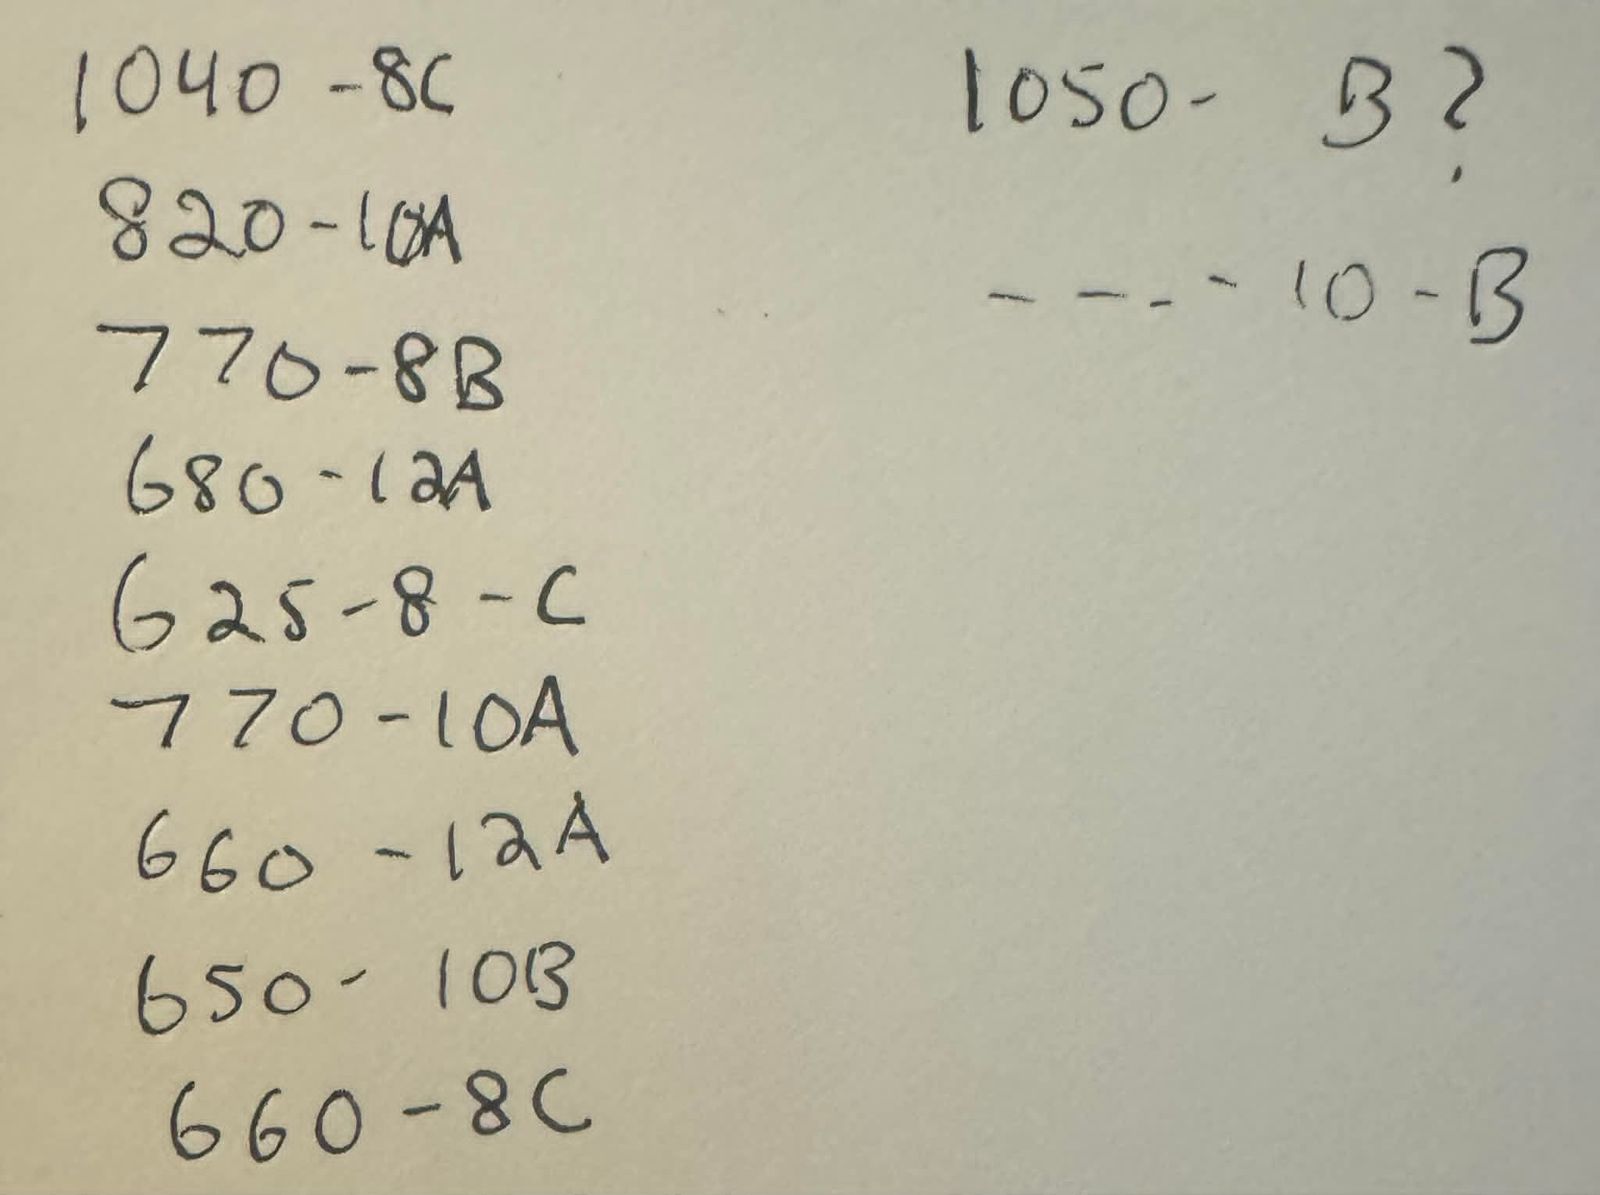 1040 - 8C
820 - 10A
770 - 8B
680 - 12A
625 - 8 - C
770 - 10A
660 - 12A
650 - 10B
660 - 8C
1050 - B?
- - - - 10 - B